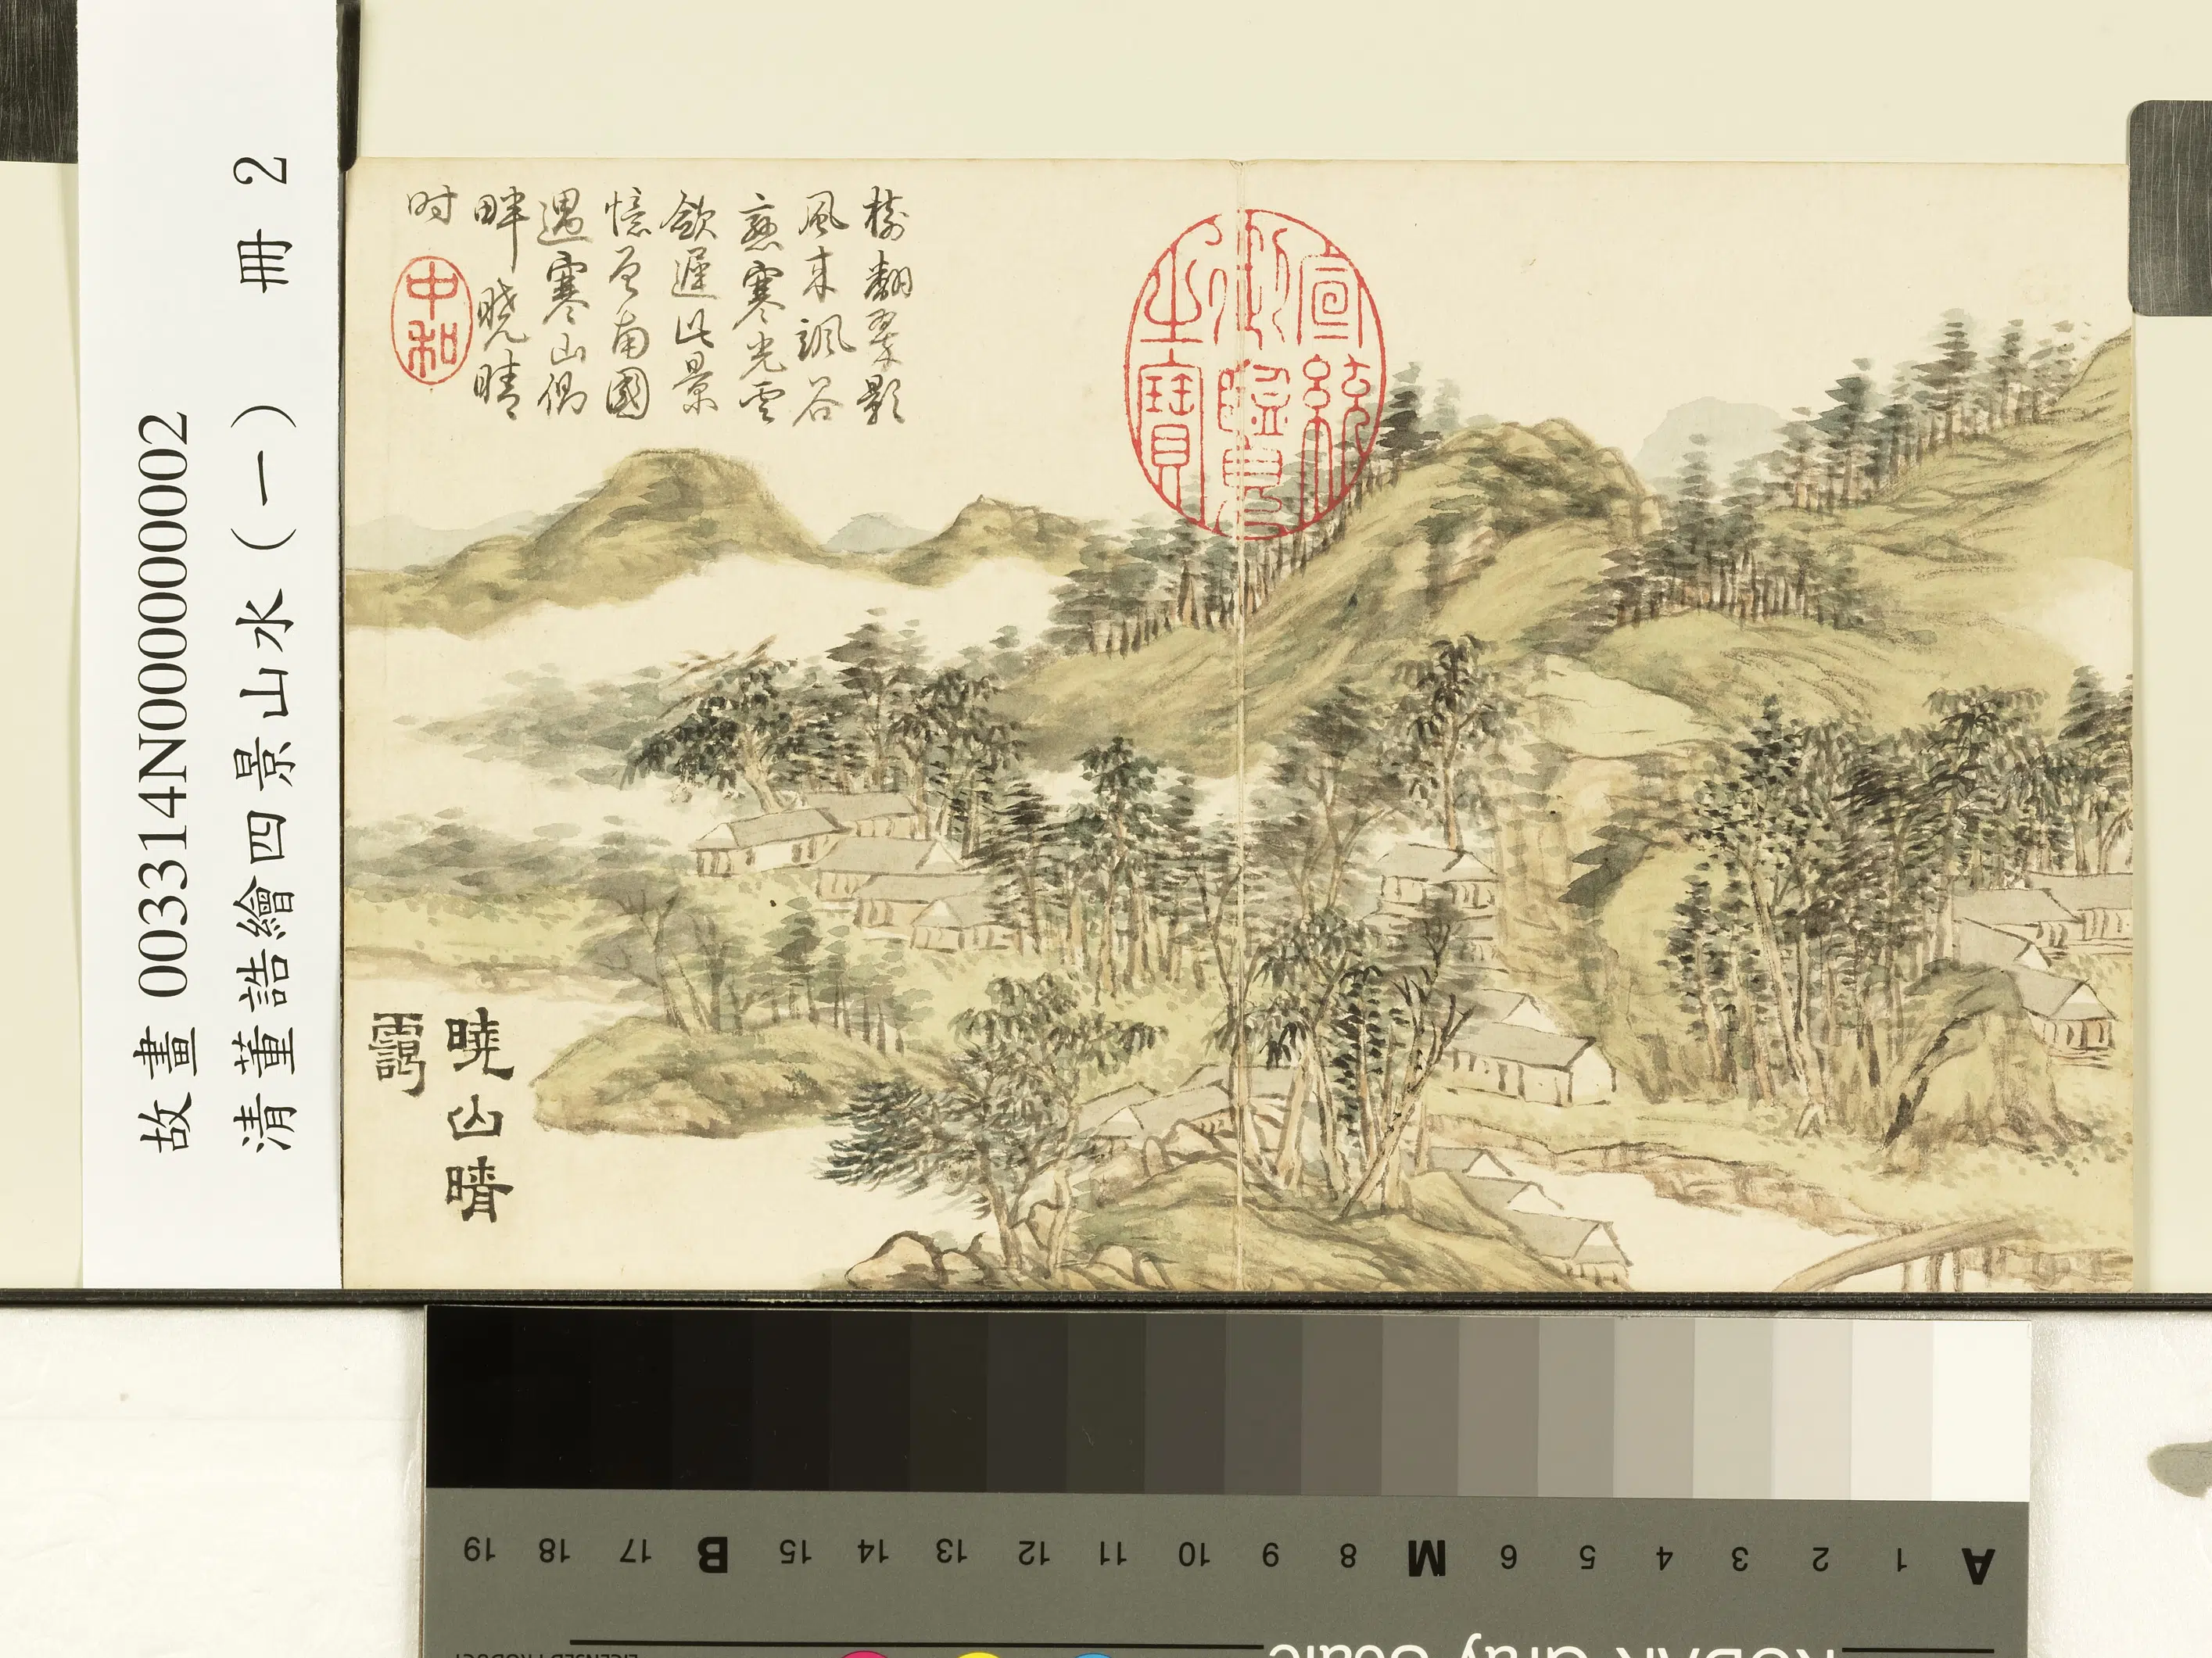 故畫 003314N000000002
清董誥繪四景山水（一） 冊 2
樹翻翠影
風来颯谷
寒光雲
斂遲此景
憶曾南國
遇寒山偶
畔曉晴
时
中和
宣統
御覽
之寶
曉山晴
靄
A 1 2 3 4 5 6 M 8 9 10 11 12 13 14 15 B 17 18 19
KODAK Gray Scale
LICENSED PRODUCT